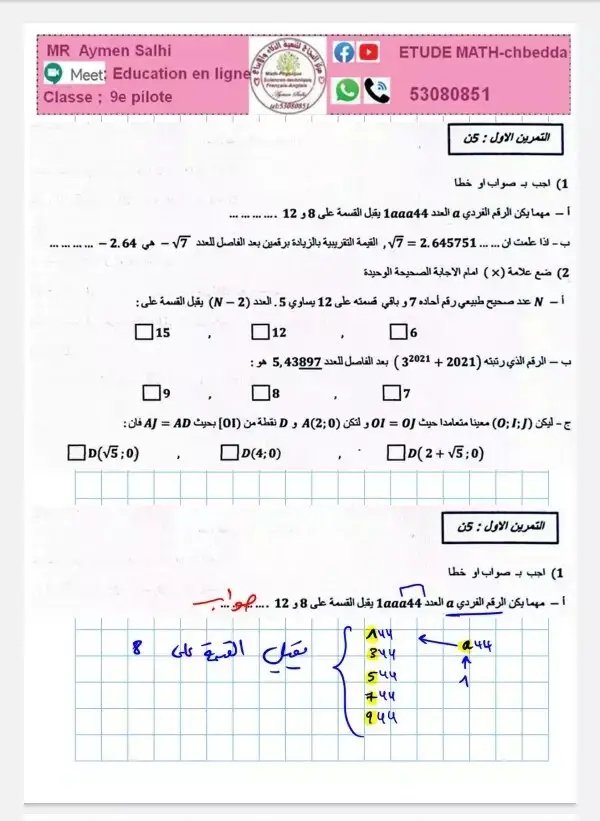 MR Aymen Salhi
Meet: Education en ligne
Classe ; 9e pilote
مركز النجاح لتنمية الذكاء والإبداع
Math-Physique
Sciences-techniques
Français-Anglais
Aymen Salhi
tel:53080851
ETUDE MATH-chbedda
53080851
التمرين الاول : 5ن
1) اجب بـ صواب او خطا
أ – مهما يكن الرقم الفردي a العدد 1aaa44 يقبل القسمة على 8 و 12 .... ... ... ...
ب - اذا علمت ان ... ... 2.645751 = √7 , القيمة التقريبية بالزيادة برقمين بعد الفاصل للعدد √7 − هي 2.64 − ... ... ... ...
2) ضع علامة (×) امام الاجابة الصحيحة الوحيدة
أ – N عدد صحيح طبيعي رقم أحاده 7 و باقي قسمته على 12 يساوي 5 . العدد (N − 2) يقبل القسمة على :
6 , 12 , 15
ب – الرقم الذي رتبته (3²⁰²¹ + 2021) بعد الفاصل للعدد 5,43897 هو :
7 , 8 , 9
ج - ليكن (O; I; J) معينا متعامدا حيث OI = OJ و لتكن A(2; 0) و D نقطة من [OI) بحيث AJ = AD فان :
D( 2 + √5 ; 0) , D(4; 0) , D(√5 ; 0)
التمرين الاول : 5ن
1) اجب بـ صواب او خطا
أ – مهما يكن الرقم الفردي a العدد 1aaa44 يقبل القسمة على 8 و 12 .... صواب ...
a44
1
144
344
544
744
944
يقبل القسمة على 8